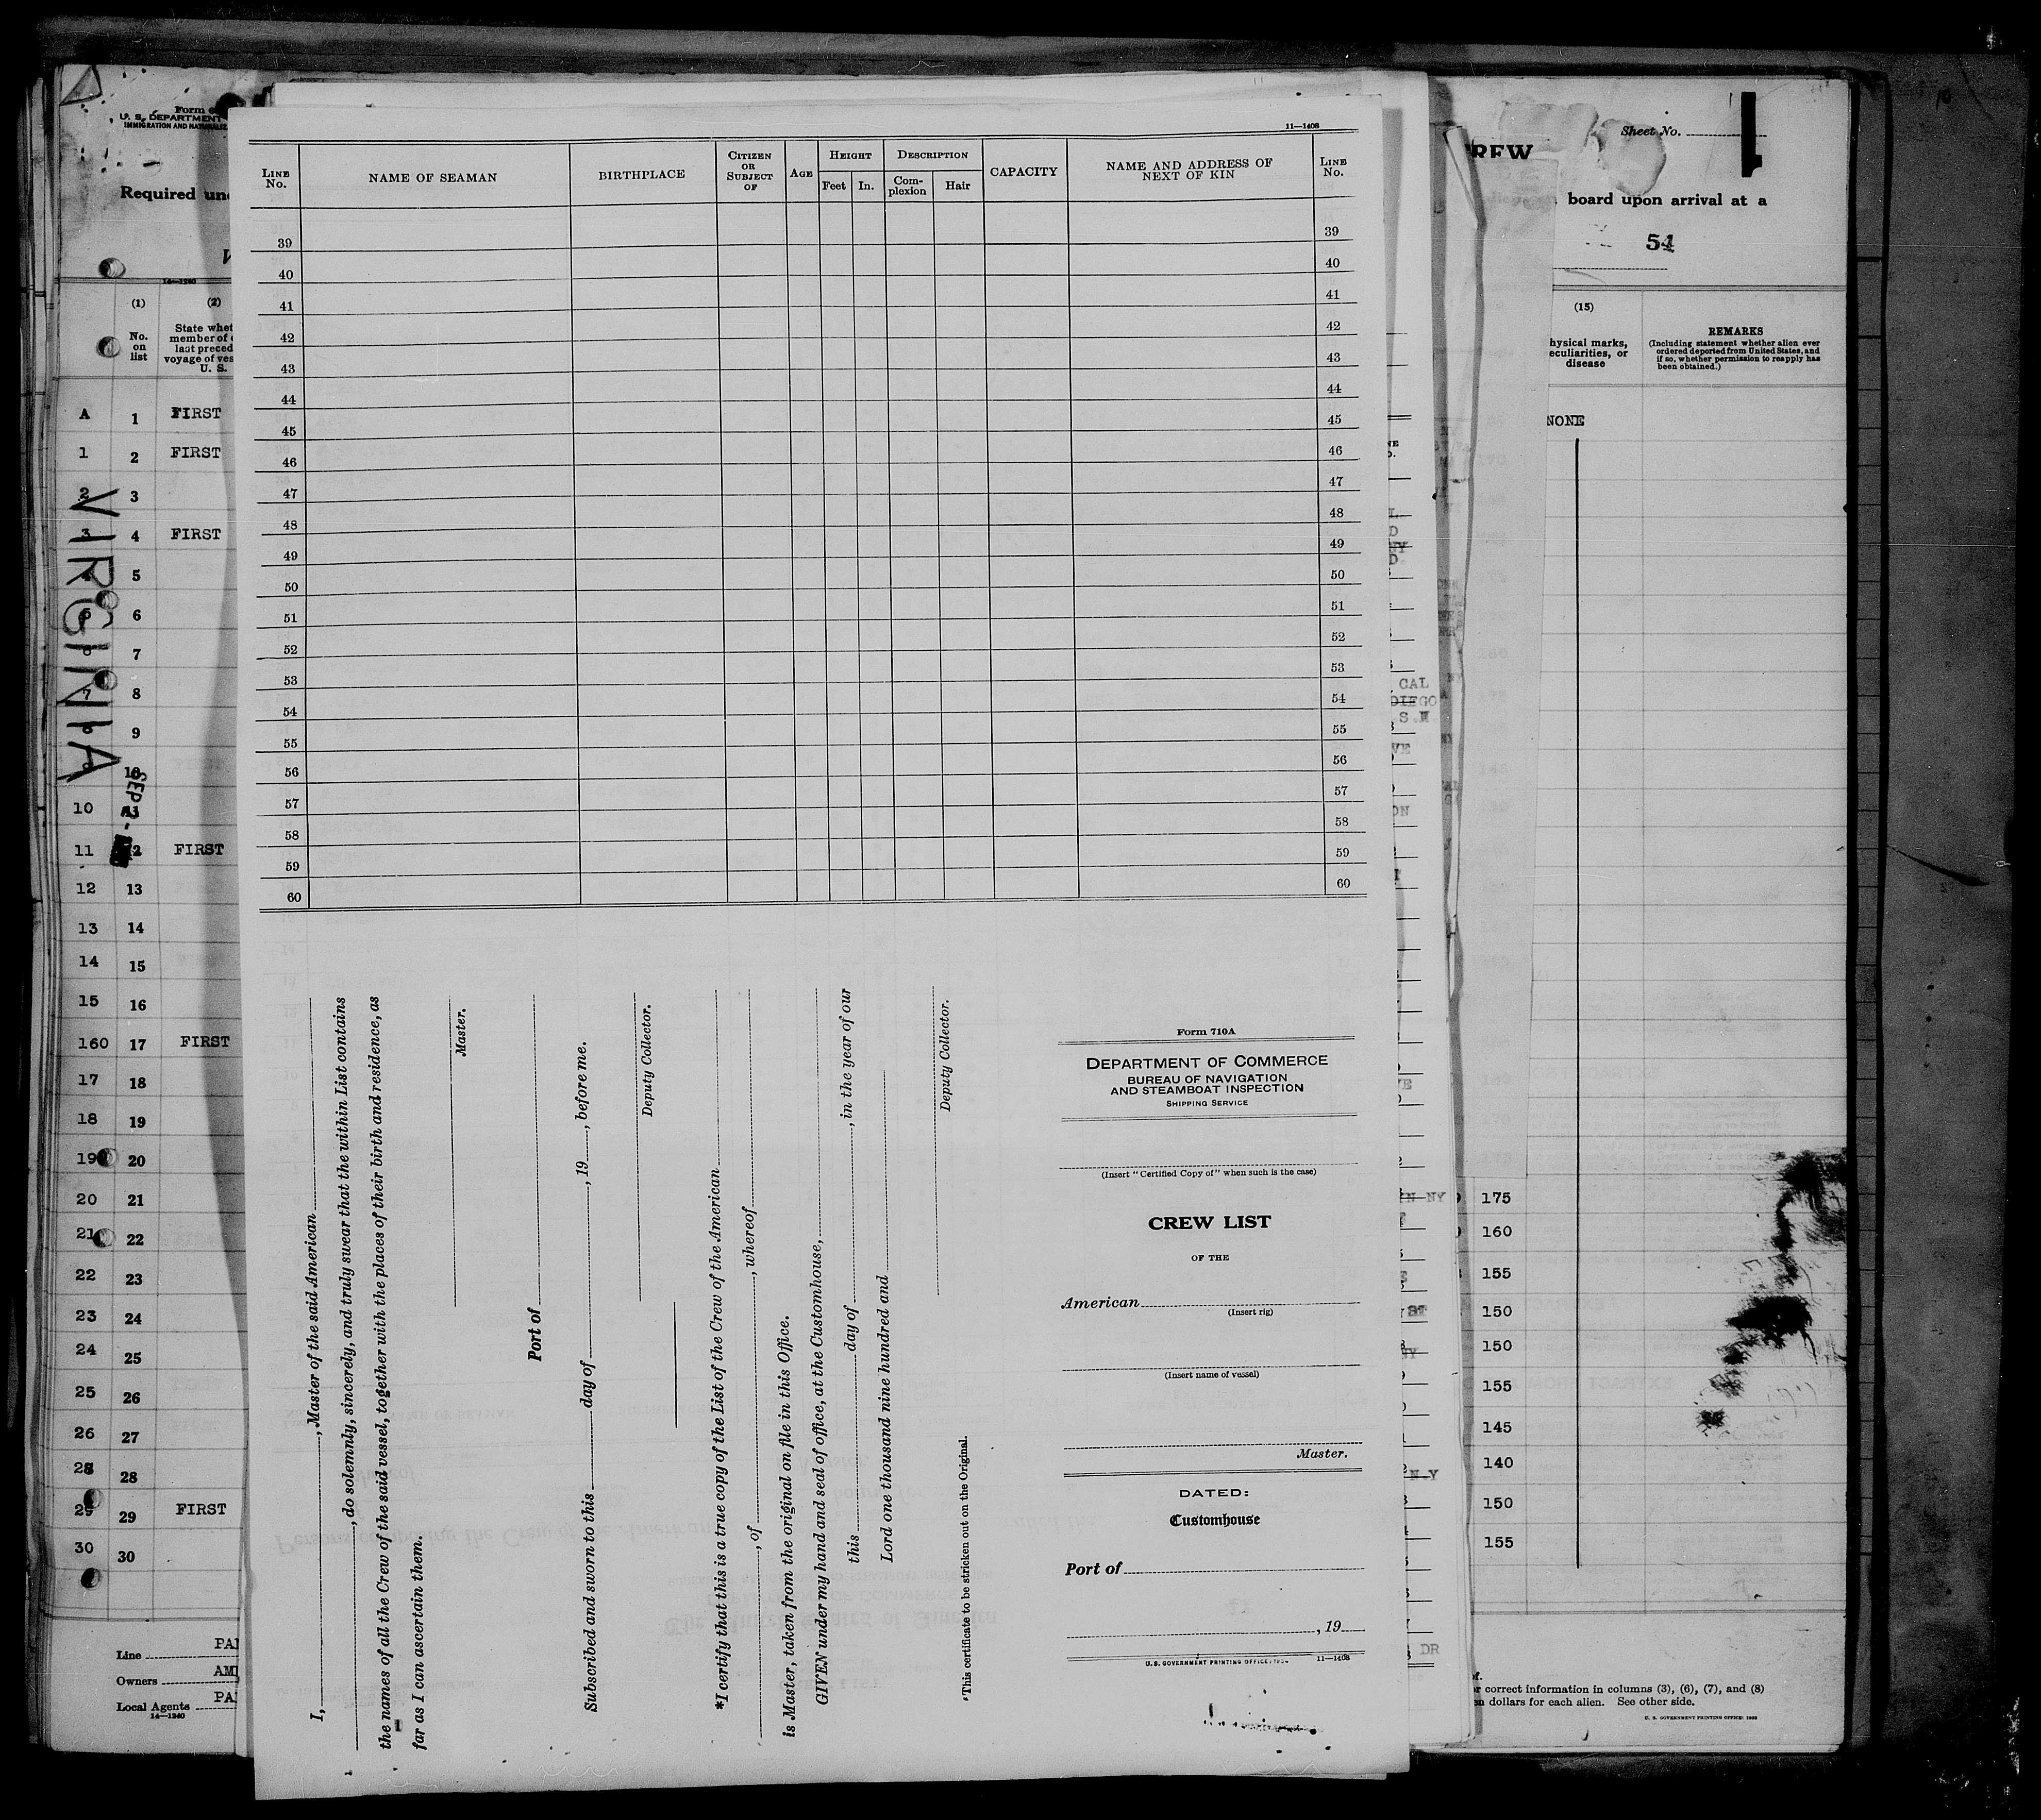 Form
U. S. DEPARTMENT
IMMIGRATION AND
Required
14—1240
(1)
(2)
No.
on
list
State
member of
last
voyage of
U. S.
A 1 FIRST
1 2 FIRST
2 3
3 4 FIRST
5
5 6
6 7
7 8
9
10
10
11 12 FIRST
12 13
13 14
14 15
15 16
160 17 FIRST
17 18
18 19
19 20
20 21
21 22
22 23
23 24
24 25
25 26
26 27
28
29 29 FIRST
30 30
VIRGINIA
SEP 2
Line
Owners
Local Agents
14—1240
11—1408
LINE No.
NAME OF SEAMAN
BIRTHPLACE
CITIZEN OR SUBJECT OF
AGE
HEIGHT
Feet In.
DESCRIPTION
Complexion Hair
CAPACITY
NAME AND ADDRESS OF NEXT OF KIN
LINE No.
39 39
40 40
41 41
42 42
43 43
44 44
45 45
46 46
47 47
48 48
49 49
50 50
51 51
52 52
53 53
54 54
55 55
56 56
57 57
58 58
59 59
60 60
I, , Master of the said American
, do solemnly, sincerely, and truly swear that the within List contains
the names of all the Crew of the said vessel, together with the places of their birth and residence, as
far as I can ascertain them.
Master.
Port of
Subscribed and sworn to this day of , 19 , before me.
Deputy Collector.
*I certify that this is a true copy of the List of the Crew of the American
, of , whereof
is Master, taken from the original on file in this Office.
GIVEN under my hand and seal of office, at the Customhouse,
this day of , in the year of our
Lord one thousand nine hundred and
Deputy Collector.
*This certificate to be stricken out on the Original.
Form 710A
DEPARTMENT OF COMMERCE
BUREAU OF NAVIGATION
AND STEAMBOAT INSPECTION
SHIPPING SERVICE
(Insert "Certified Copy of" when such is the case)
CREW LIST
OF THE
American
(Insert rig)
(Insert name of vessel)
Master.
DATED:
Customhouse
Port of
, 19
U. S. GOVERNMENT PRINTING OFFICE
11—1408
CAL
DIEGO
N NY
N.Y
DR
Sheet No.
1
board upon arrival at a
54
(15)
REMARKS
(Including statement whether alien ever
ordered deported from United States, and
if so, whether permission to reapply has
been obtained.)
disease
NONE
175
160
155
150
150
155
145
140
150
155
correct information in columns (3), (6), (7), and (8)
dollars for each alien. See other side.
U. S. GOVERNMENT PRINTING OFFICE